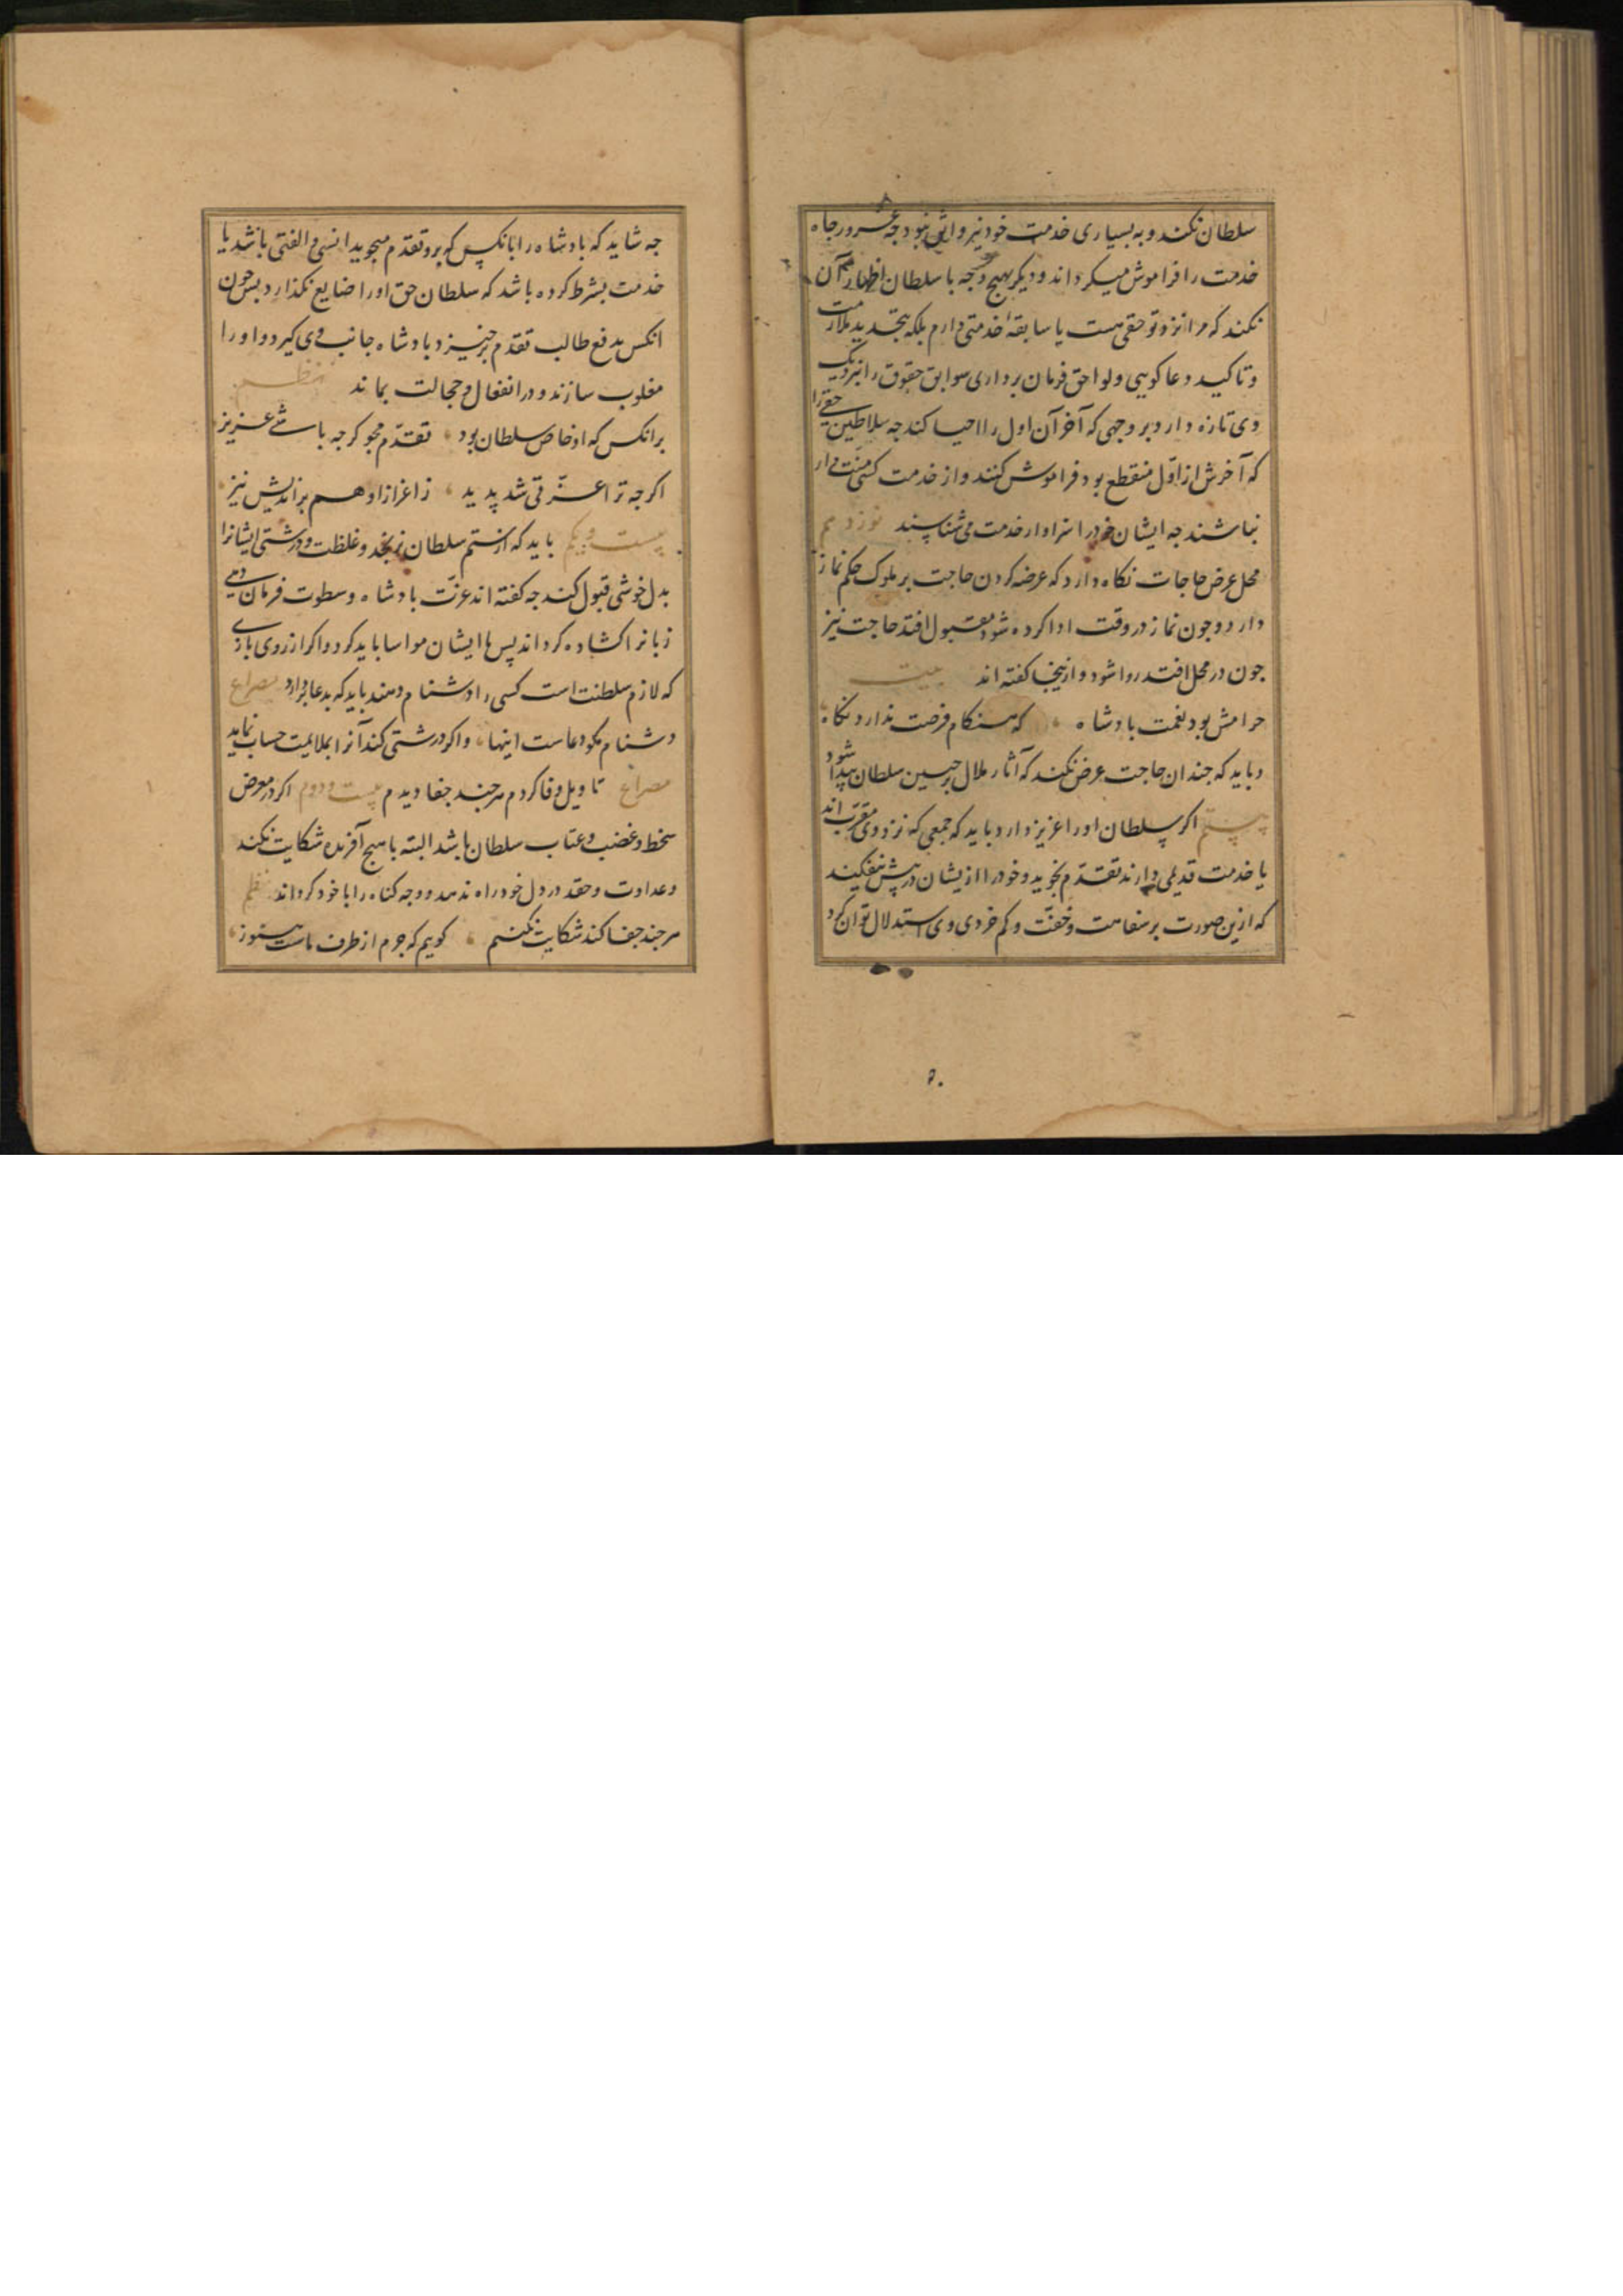 سلطان نکند و به بسیاری خدمت خود نیز واثق نبود جه غرور جاه
خدمت را فراموش میکرداند و دیکر بهیج وجه با سلطان اظهار آن
نکند که مرا نزد تو حقی هست یا سابقه خدمتی دارم بلکه بتجدید ملازمت
و تاکید دعا کویی و لواحق فرمان برداری سوابق حقوق را نزدیک
وی تازه دارد بر وجهی که آخر آن اول را احیا کند جه سلاطین حقی را
که آخرش از اول منقطع بود فراموش کنند و از خدمت کسی منت دار
نباشند جه ایشان خود را سزاوار خدمت می شناسند نوزدهم
محل عرض حاجات نکاه دارد که عرضه کردن حاجت بر ملوک حکم نماز
دارد و جون نماز در وقت ادا کرده شود مقبول افتد حاجت نیز
جون در محل افتد روا شود و ازینجا کفته اند بیت
حرامش بود نعمت بادشاه که هنکام فرصت ندارد نکاه
و باید که جندان حاجت عرض نکند که آثار ملال بر جبین سلطان پیدا شود
بیستم اکر سلطان او را عزیز دارد باید که جمعی که نزد وی مقرب اند
یا خدمت قدیمی دارند تقدم نجوید و خود را از یشان در پیش نیفکند
که ازین صورت بر سفاهت و خفت و کم خردی وی استدلال توان کرد
۵۰
جه شاید که بادشاه را با نکس که برو تقدم میجوید انسی و الفتی باشد یا
خدمت بشرط کرده باشد که سلطان حق او را ضایع نکذارد بس جون
انکس بدفع طالب تقدم برخیزد بادشاه جانب وی کیرد و او را
مغلوب سازند و در انفعال و خجالت بماند نظم
بر انکس که او خاص سلطان بود تقدم مجو کرجه باشی عزیز
اکرجه ترا عزتی شد پدید ز اعزاز او هم براندیش نیز
بیست و یکم باید که از ستم سلطان نرنجد و غلظت و درشتی ایشانرا
بدل خوشی قبول کند جه کفته اند عزت بادشاه و سطوت فرمان دهی
زبانرا کشاده کرداند پس با ایشان مواسا باید کرد و اکر از روی بازی
که لازم سلطنت است کسی را دشنام دهند باید که بدعا بردارد مصراع
دشنام مکو دعاست اینها و اکر درشتی کند آنرا بملایمت حساب نماید
مصراع تاویل وفا کردم هر جند جفا دیدم بیست و دوم اکر در معرض
سخط و غضب و عتاب سلطان باشد البته با هیج آفریده شکایت نکند
و عداوت و حقد در دل خود راه ندهد و وجه کناه را با خود کرداند نظم
هر جند جفا کند شکایت نکنم کویم که جرم از طرف ماست هنوز